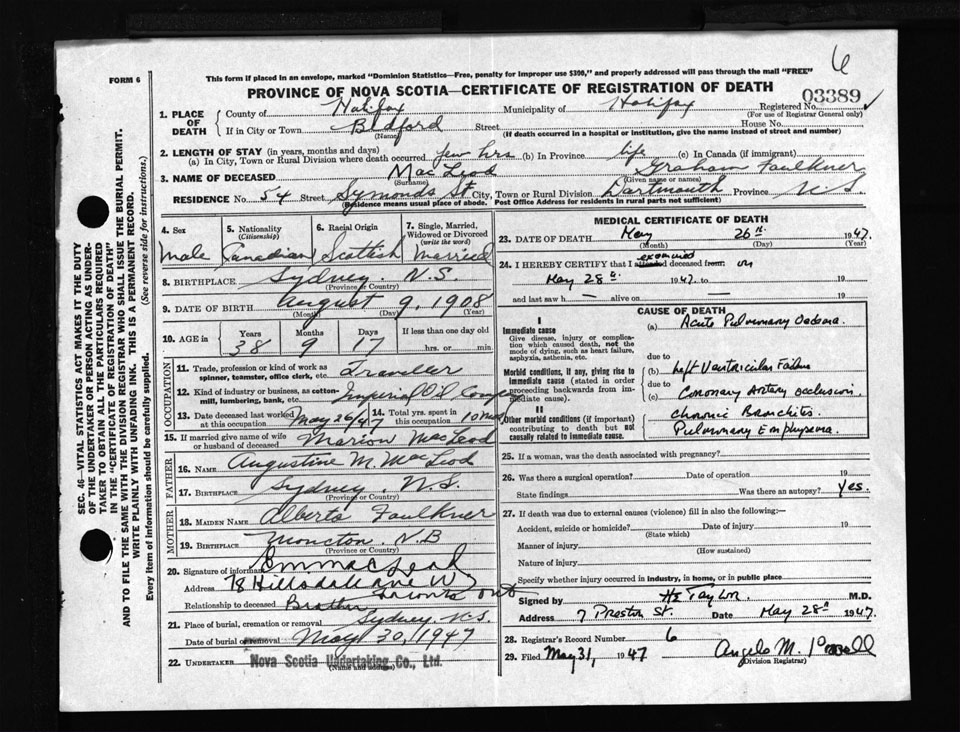 6
FORM 6
This form if placed in an envelope, marked "Dominion Statistics—Free, penalty for improper use $300," and properly addressed will pass through the mail "FREE"
PROVINCE OF NOVA SCOTIA—CERTIFICATE OF REGISTRATION OF DEATH
03389
1. PLACE OF DEATH
County of Halifax Municipality of Halifax Registered No.
(For use of Registrar General only)
If in City or Town Bedford Street House No.
(Name) (If death occurred in a hospital or institution, give the name instead of street and number)
2. LENGTH OF STAY (in years, months and days)
(a) In City, Town or Rural Division where death occurred few hrs (b) In Province life (c) In Canada (if immigrant)
3. NAME OF DECEASED MacLeod Graham Faulkner
(Surname) (Given name or names)
RESIDENCE No. 54 Street Symonds St City, Town or Rural Division Dartmouth Province N.S.
(Residence means usual place of abode. Post Office Address for residents in rural parts not sufficient)
4. Sex
Male
5. Nationality
(Citizenship)
Canadian
6. Racial Origin
Scottish
7. Single, Married, Widowed or Divorced
(write the word)
Married
8. BIRTHPLACE Sydney N.S.
(Province or Country)
9. DATE OF BIRTH August 9, 1908
(Month) (Day) (Year)
10. AGE in Years Months Days If less than one day old
38 9 17 hrs. or min.
OCCUPATION
11. Trade, profession or kind of work as spinner, teamster, office clerk, etc. Traveller
12. Kind of industry or business, as cotton-mill, lumbering, bank, etc. Imperial Oil Company
13. Date deceased last worked at this occupation May 26/47
14. Total yrs. spent in this occupation 10 mos
15. If married give name of wife or husband of deceased Marion MacLeod
FATHER
16. NAME Augustine M. MacLeod
17. BIRTHPLACE Sydney. N.S.
(Province or Country)
MOTHER
18. MAIDEN NAME Alberta Faulkner
19. BIRTHPLACE Moncton. N.B
(Province or Country)
20. Signature of informant
Address 78 Hillsdale Ave W Toronto Ont
Relationship to deceased Brother
21. Place of burial, cremation or removal Sydney. N.S.
Date of burial or removal May 30, 1947
22. UNDERTAKER Nova Scotia Undertaking Co., Ltd.
(Name and Address)
MEDICAL CERTIFICATE OF DEATH
23. DATE OF DEATH May 26th 1947
(Month) (Day) (Year)
24. I HEREBY CERTIFY that I attended examined deceased from: on
May 28th 1947 to 19
and last saw h — alive on — 19
CAUSE OF DEATH
I
Immediate cause
Give disease, injury or complication which caused death, not the mode of dying, such as heart failure, asphyxia, asthenia, etc.
(a) Acute Pulmonary Oedema.
due to
Morbid conditions, if any, giving rise to immediate cause (stated in order proceeding backwards from immediate cause).
(b) Left Ventricular Failure
due to
(c) Coronary Artery occlusion.
II
Other morbid conditions (if important) contributing to death but not causally related to immediate cause.
Chronic Bronchitis
Pulmonary Emphysema.
25. If a woman, was the death associated with pregnancy?
26. Was there a surgical operation? Date of operation 19
State findings Was there an autopsy? Yes.
27. If death was due to external causes (violence) fill in also the following:—
Accident, suicide or homicide? Date of injury 19
(State which)
Manner of injury
(How sustained)
Nature of injury
Specify whether injury occurred in industry, in home, or in public place
Signed by HS Taylor. M.D.
Address 7 Preston St. Date May 28th 1947.
28. Registrar's Record Number 6
29. Filed May 31, 1947 Angelo M.
(Division Registrar)
SEC. 46—VITAL STATISTICS ACT MAKES IT THE DUTY OF THE UNDERTAKER OR PERSON ACTING AS UNDERTAKER TO OBTAIN ALL THE PARTICULARS REQUIRED IN THE "CERTIFICATE OF REGISTRATION OF DEATH" AND TO FILE THE SAME WITH THE DIVISION REGISTRAR WHO SHALL ISSUE THE BURIAL PERMIT.
WRITE PLAINLY WITH UNFADING INK. THIS IS A PERMANENT RECORD.
Every item of information should be carefully supplied. (See reverse side for instructions.)